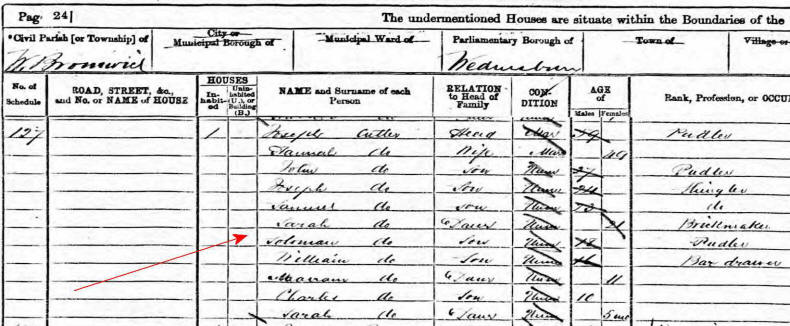 Page 24]
The undermentioned Houses are situate within the Boundaries of the
*Civil Parish [or Township] of
City or Municipal Borough of
Municipal Ward of
Parliamentary Borough of
Town of
Village or
W. Bromwich
Wednesbury
No. of Schedule
ROAD, STREET, &c., and No. or NAME of HOUSE
HOUSES
In-habit-ed
Unin-habited (U.), or Building (B.)
NAME and Surname of each Person
RELATION to Head of Family
CON-DITION
AGE of
Males Females
Rank, Profession, or OCCU
127 1 Joseph Cutler Head Mar Pudler
Hannah do Wife Mar 49
John do Son Unm 27 Pudler
Joseph do Son Unm 24 Shingler
Samuel do Son Unm do
Sarah do Daur Unm 21 Brickmaker
Soloman do Son Unm 18 Pudler
William do Son Unm 16 Bar drawer
do Daur Unm 11
Charles do Son Unm 10
Sarah do Daur Unm 5 mo